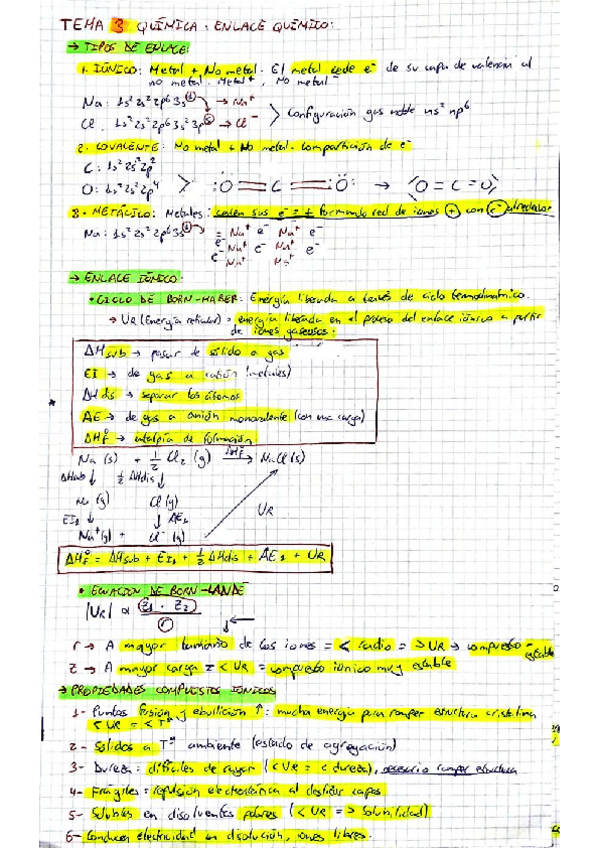 TEMA 3 QUÍMICA: ENLACE QUÍMICO:
→ TIPOS DE ENLACE:
1. IÓNICO: Metal + No metal. El metal cede e⁻ de su capa de valencia al
no metal. Metal⁺, No metal⁻
Na: 1s² 2s² 2p⁶ 3s¹ → Na⁺
Cl: 1s² 2s² 2p⁶ 3s² 3p⁵ → Cl⁻ > Configuración gas noble ns² np⁶
2. COVALENTE: No metal + No metal. Compartición de e⁻
C: 1s² 2s² 2p²
O: 1s² 2s² 2p⁴ > :O=C=O: → O=C=O
3. METÁLICO: Metales: ceden sus e⁻ = + formando red de iones + con e⁻ alrededor
Na: 1s² 2s² 2p⁶ 3s¹ → = Na⁺ e⁻ Na⁺ e⁻
e⁻ Na⁺ e⁻ Na⁺ e⁻
e⁻ Na⁺ Na⁺
→ ENLACE IÓNICO:
• CICLO DE BORN-HABER: Energía liberada a través de ciclo termodinámico.
→ UR (Energía reticular) = energía liberada en el proceso del enlace iónico a partir
de iones gaseosos:
ΔHsub → pasar de sólido a gas
EI → de gas a catión (metales)
* ΔHdis → separar los átomos
AE → de gas a anión monovalente (con una carga)
ΔHf° → entalpía de formación
Na (s) + 1/2 Cl₂ (g) ΔHf° → NaCl (s)
ΔHsub ↓ 1/2 ΔHdis ↓
Na (g) Cl (g)
EI₁ ↓ ↓ AE₁ UR
Na⁺(g) + Cl⁻ (g)
ΔHf° = ΔHsub + EI₁ + 1/2 ΔHdis + AE₁ + UR
• ECUACIÓN DE BORN-LANDÉ
|UR| α Z₁ · Z₂ / r
r → A mayor tamaño de los iones = < radio = > UR → compuesto + estable
Z → A mayor carga = < UR = compuesto iónico muy estable
→ PROPIEDADES COMPUESTOS IÓNICOS
1- Puntos fusión y ebullición ↑: mucha energía para romper estructura cristalina
< UR = < Tª
2- Sólidos a Tª ambiente (estado de agregación)
3- Dureza: difíciles de rayar (< UR = < dureza), necesario romper estructura
4- Frágiles: repulsión electrostática al deslizar capas
5- Solubles en disolventes polares (< UR = > Solubilidad)
6- Conducen electricidad en disolución, iones libres.